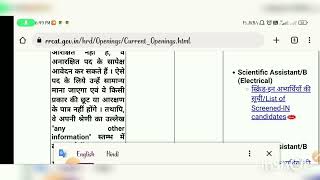 rrcat.gov.in/hrd/Openings/Current_Openings.html
आरक्षित नहीं है, वे
अनारक्षित पद के सापेक्ष
आवेदन कर सकते हैं। ऐसे
पद के लिये उन्हें सामान्य
माना जाएगा एवं वे किसी
प्रकार की छूट या आरक्षण
के पात्र नहीं होंगे। तथापि,
वे अपनी श्रेणी का उल्लेख
"any other
information" स्तम्भ में
Scientific Assistant/B
(Electrical)
स्क्रिंड-इन अभ्यर्थियों की
सूची/List of
Screened-IN
candidates
English Hindi